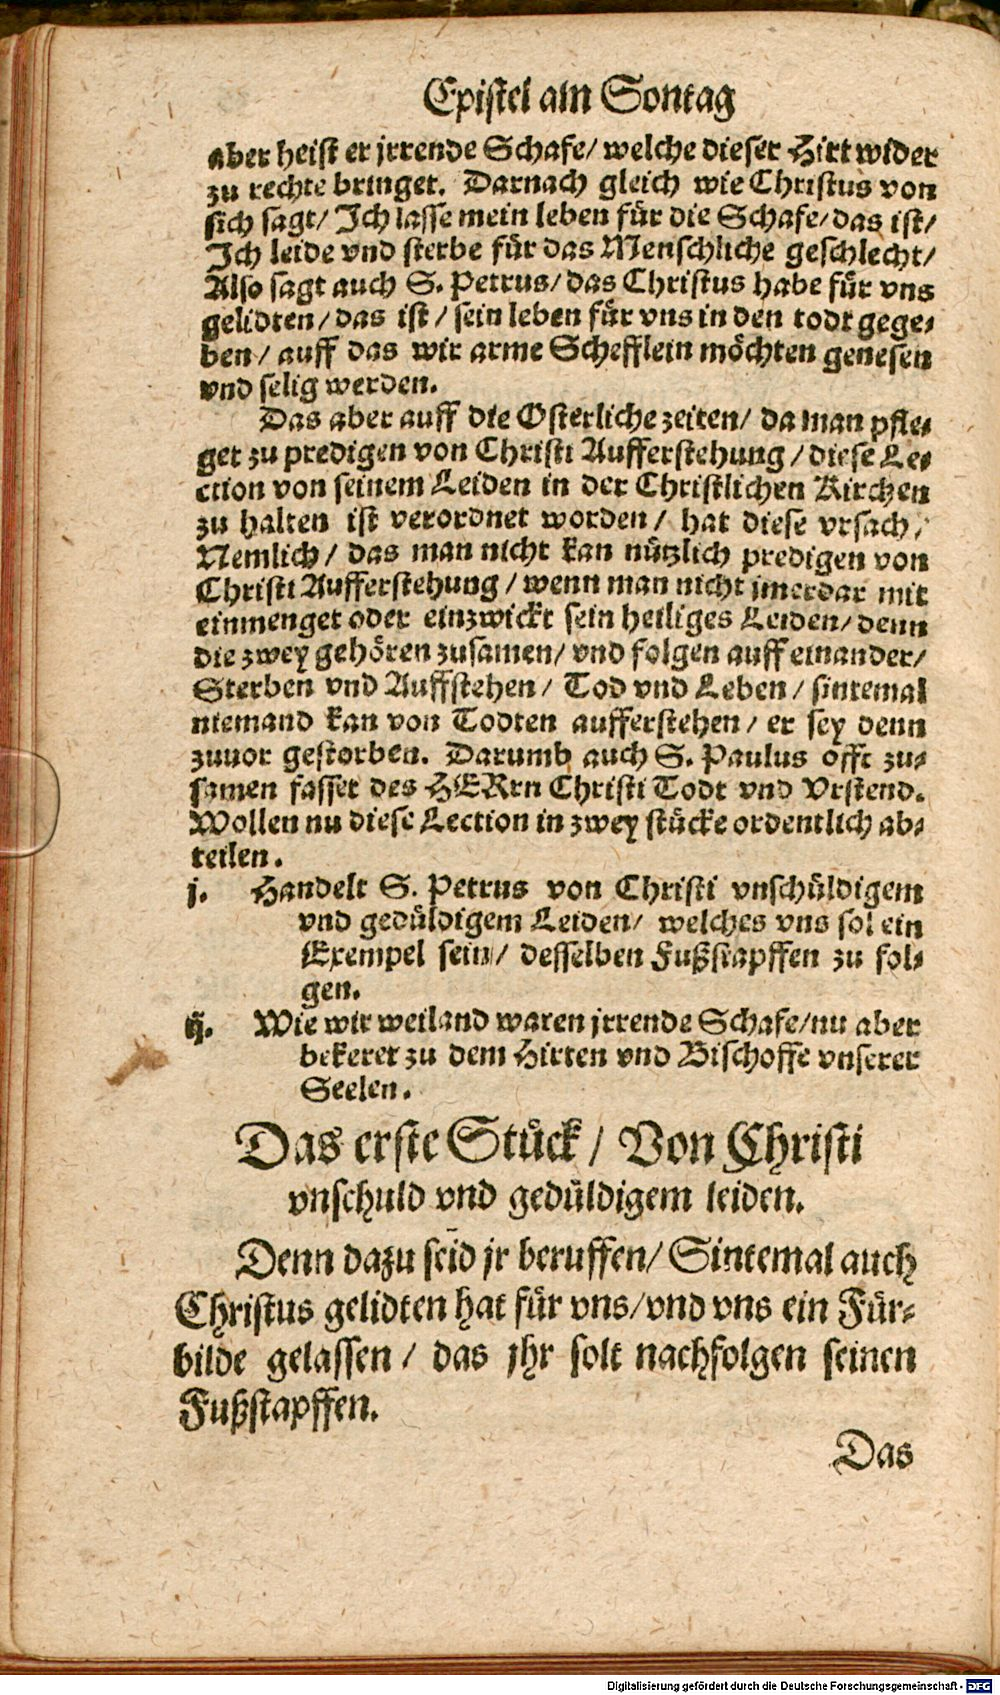 Epistel am Sontag
aber heist er jrrende Schafe/ welche dieser Hirt wider
zu rechte bringet. Darnach gleich wie Christus von
sich sagt/ Ich lasse mein leben für die Schafe/ das ist/
Ich leide vnd sterbe für das Menschliche geschlecht/
Also sagt auch S. Petrus/ das Christus habe für vns
gelidten/ das ist/ sein leben für vns in den todt gege-
ben/ auff das wir arme Schefflein möchten genesen
vnd selig werden.
Das aber auff die Osterliche zeiten/ da man pfle-
get zu predigen von Christi Aufferstehung/ diese Le-
ction von seinem Leiden in der Christlichen Kirchen
zu halten ist verordnet worden/ hat diese vrsach/
Nemlich/ das man nicht kan nützlich predigen von
Christi Aufferstehung/ wenn man nicht jmerdar mit
einmenget oder einzwickt sein heiliges Leiden/ denn
die zwey gehören zusamen/ vnd folgen auff einander/
Sterben vnd Auffstehen/ Tod vnd Leben/ sintemal
niemand kan von Todten aufferstehen/ er sey denn
zuuor gestorben. Darumb auch S. Paulus offt zu-
samen fasset des HERrn Christi Todt vnd Vrstend.
Wollen nu diese Lection in zwey stücke ordentlich ab-
teilen.
j. Handelt S. Petrus von Christi vnschüldigem
vnd gedüldigem Leiden/ welches vns sol ein
Exempel sein/ desselben Fußstapffen zu fol-
gen.
ij. Wie wir weiland waren jrrende Schafe/ nu aber
bekeret zu dem Hirten vnd Bischoffe vnserer
Seelen.
Das erste Stück/ Von Christi
vnschuld vnd gedüldigem leiden.
Denn dazu seid jr beruffen/ Sintemal auch
Christus gelidten hat für vns/ vnd vns ein Für-
bilde gelassen/ das jhr solt nachfolgen seinen
Fußstapffen.
Das
Digitalisierung gefördert durch die Deutsche Forschungsgemeinschaft - DFG